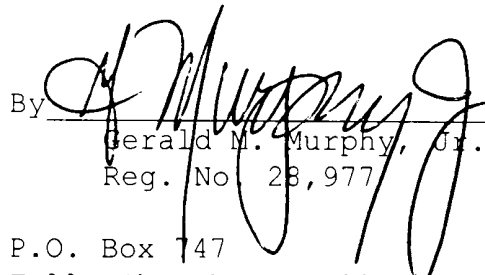 By G M Murphy Jr
Gerald M. Murphy, Jr.
Reg. No. 28,977
P.O. Box 747